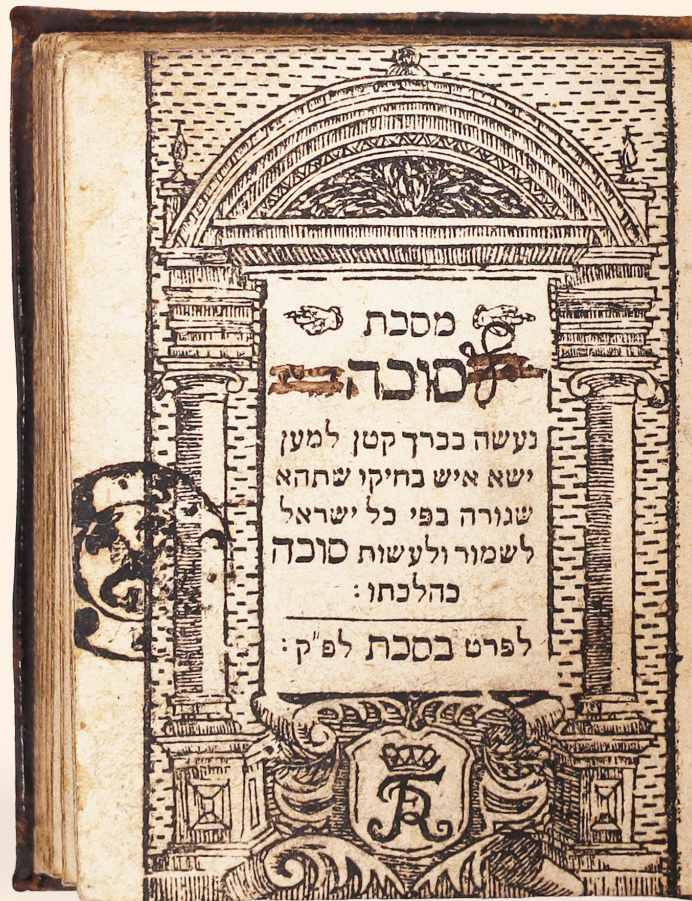 מסכת
סוכה
נעשה בכרך קטן למען
ישא איש בחיקו שתהא
שגורה בפי כל ישראל
לשמור ולעשות סוכה
כהלכתו:
לפרט בסכת לפ"ק: